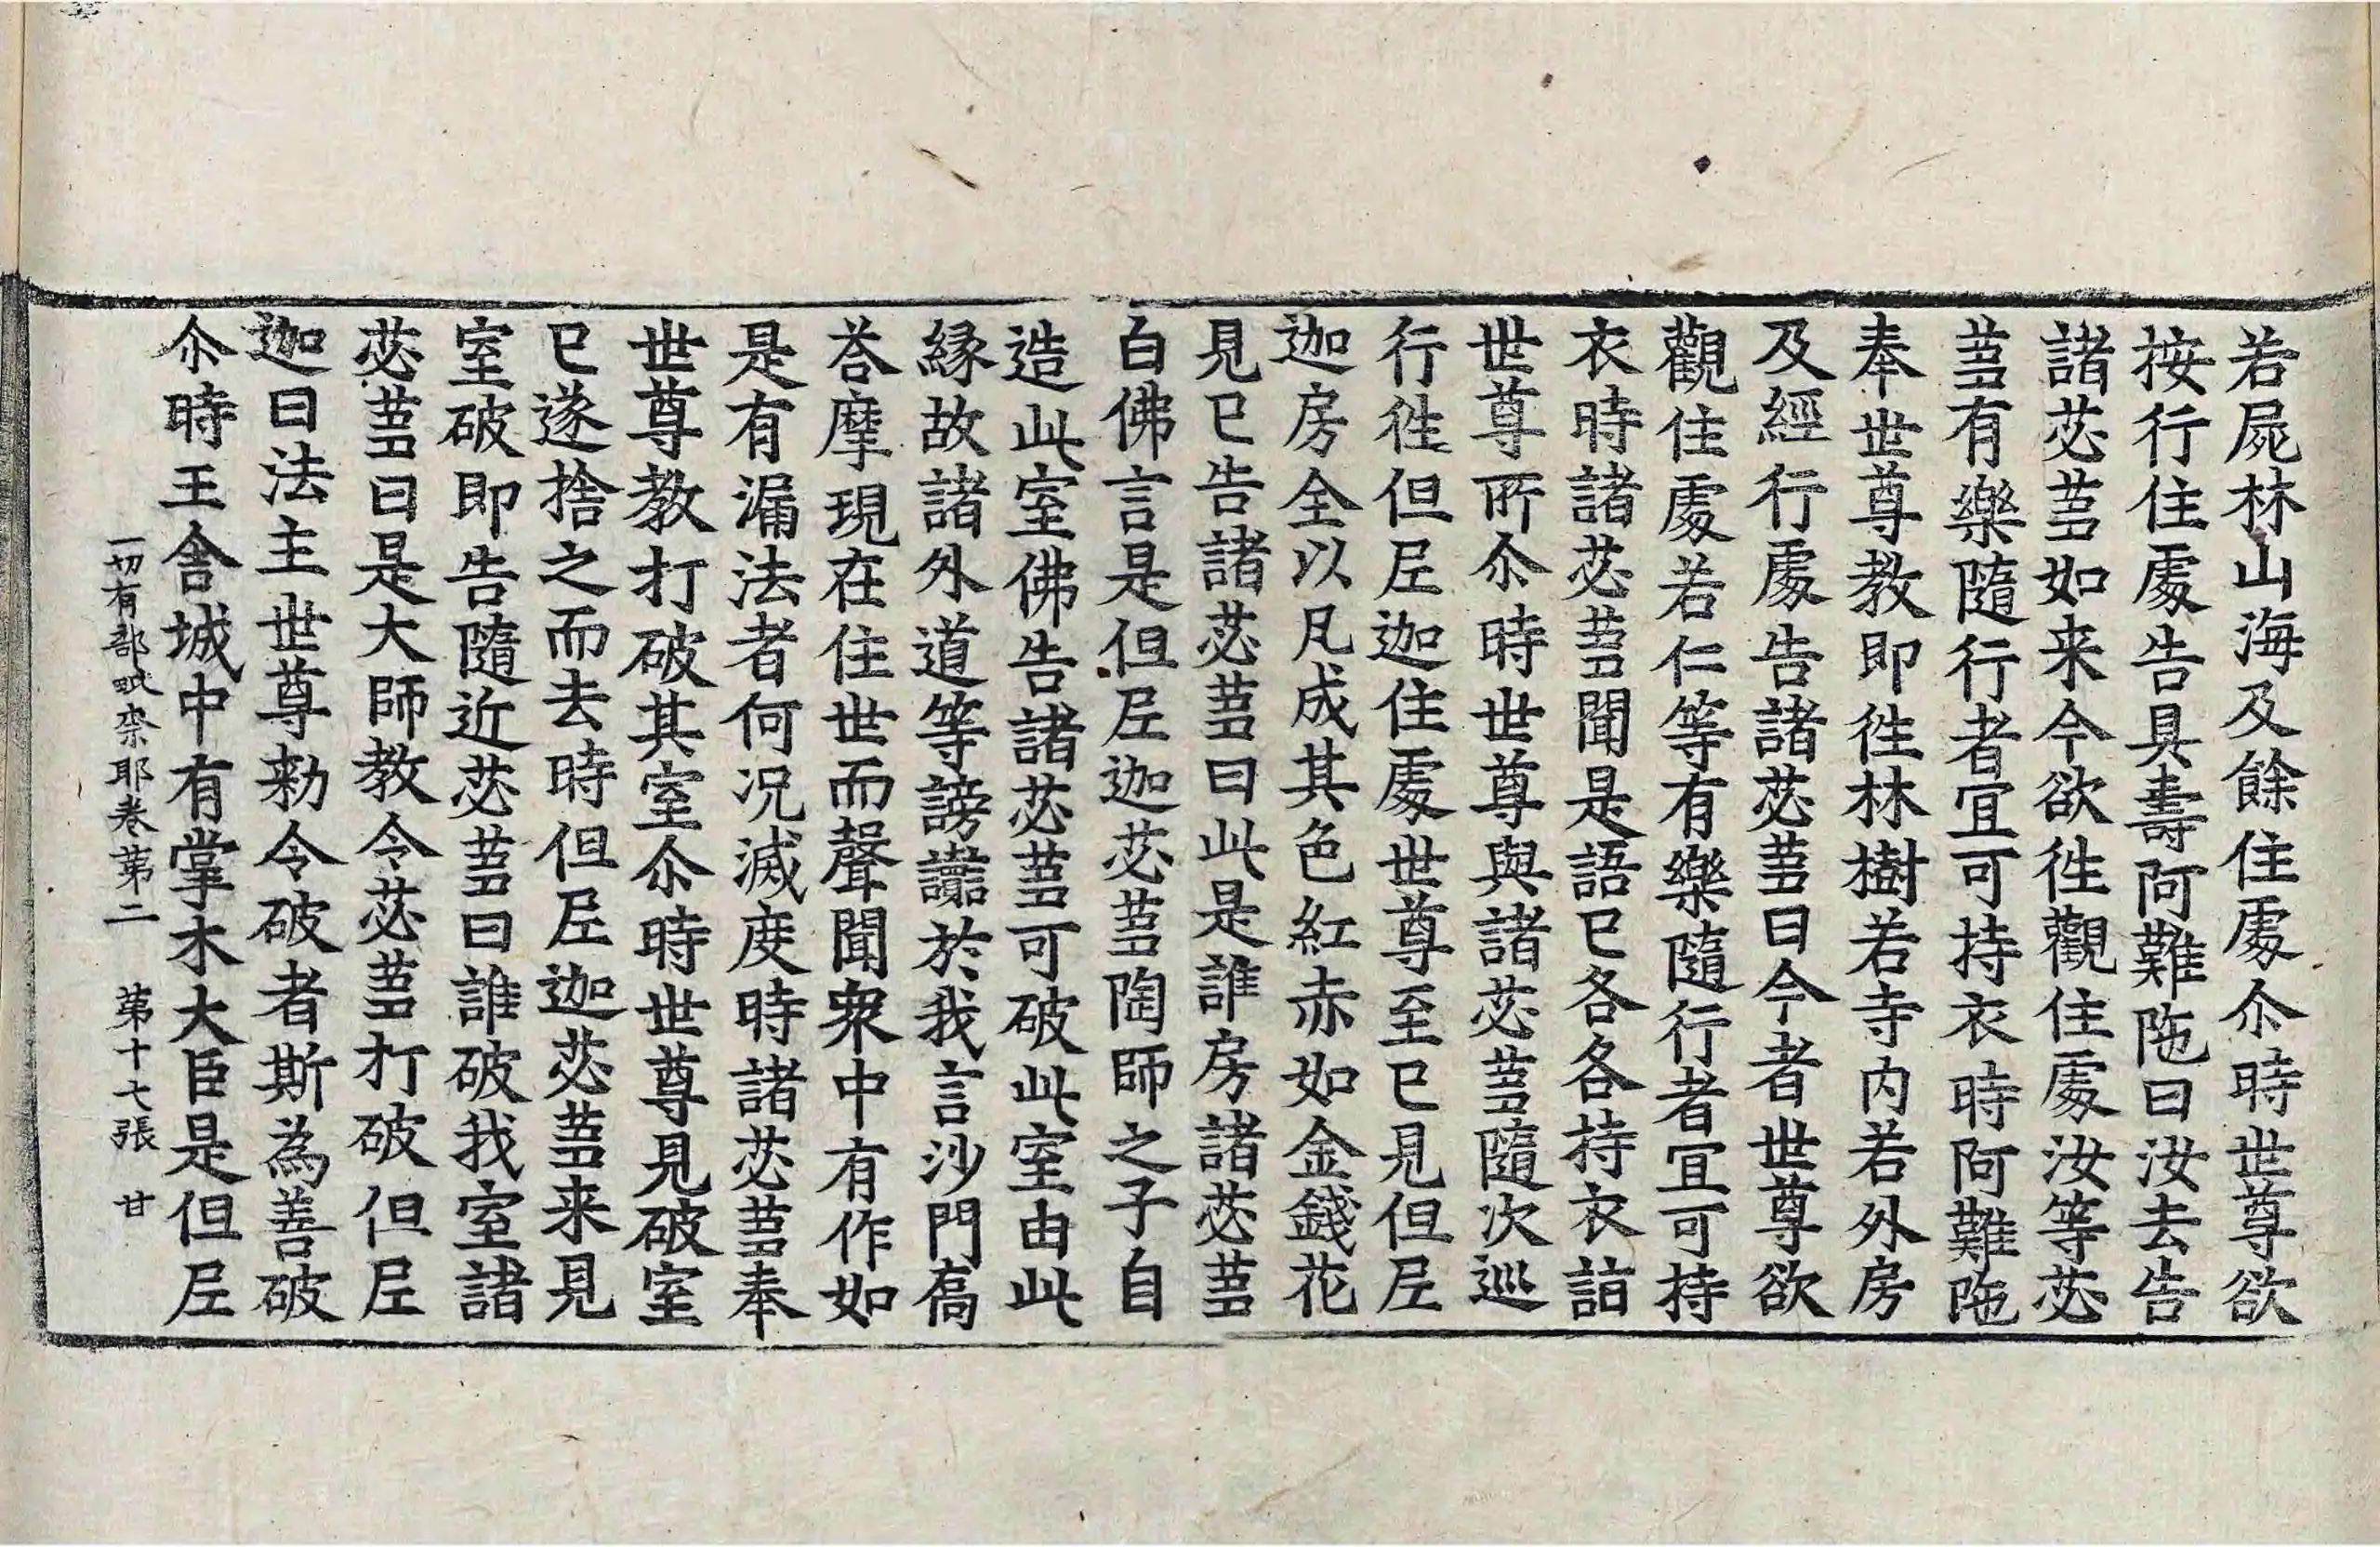 若屍林山海及餘住處尒時世尊欲
按行住處告具壽阿難陁曰汝去告
諸苾蒭如来今欲徃觀住處汝等苾
蒭有樂隨行者宜可持衣時阿難陁
奉世尊教即徃林樹若寺内若外房
及經行處告諸苾蒭曰今者世尊欲
觀住處若仁等有樂隨行者宜可持
衣時諸苾蒭聞是語已各各持衣詣
世尊所尒時世尊與諸苾蒭隨次巡
行徃但尼迦住處世尊至已見但尼
迦房全以凡成其色紅赤如金錢花
見已告諸苾蒭曰此是誰房諸苾蒭
白佛言是但尼迦苾蒭陶師之子自
造此室佛告諸苾蒭可破此室由此
縁故諸外道等謗讟於我言沙門喬
荅摩現在住世而聲聞衆中有作如
是有漏法者何況滅度時諸苾蒭奉
世尊教打破其室尒時世尊見破室
已遂捨之而去時但尼迦苾蒭来見
室破即告隨近苾蒭曰誰破我室諸
苾蒭曰是大師教令苾蒭打破但尼
迦曰法主世尊勑令破者斯為善破
尒時王舎城中有掌木大臣是但尼
一切有部毗奈耶卷第二 第十七張 甘